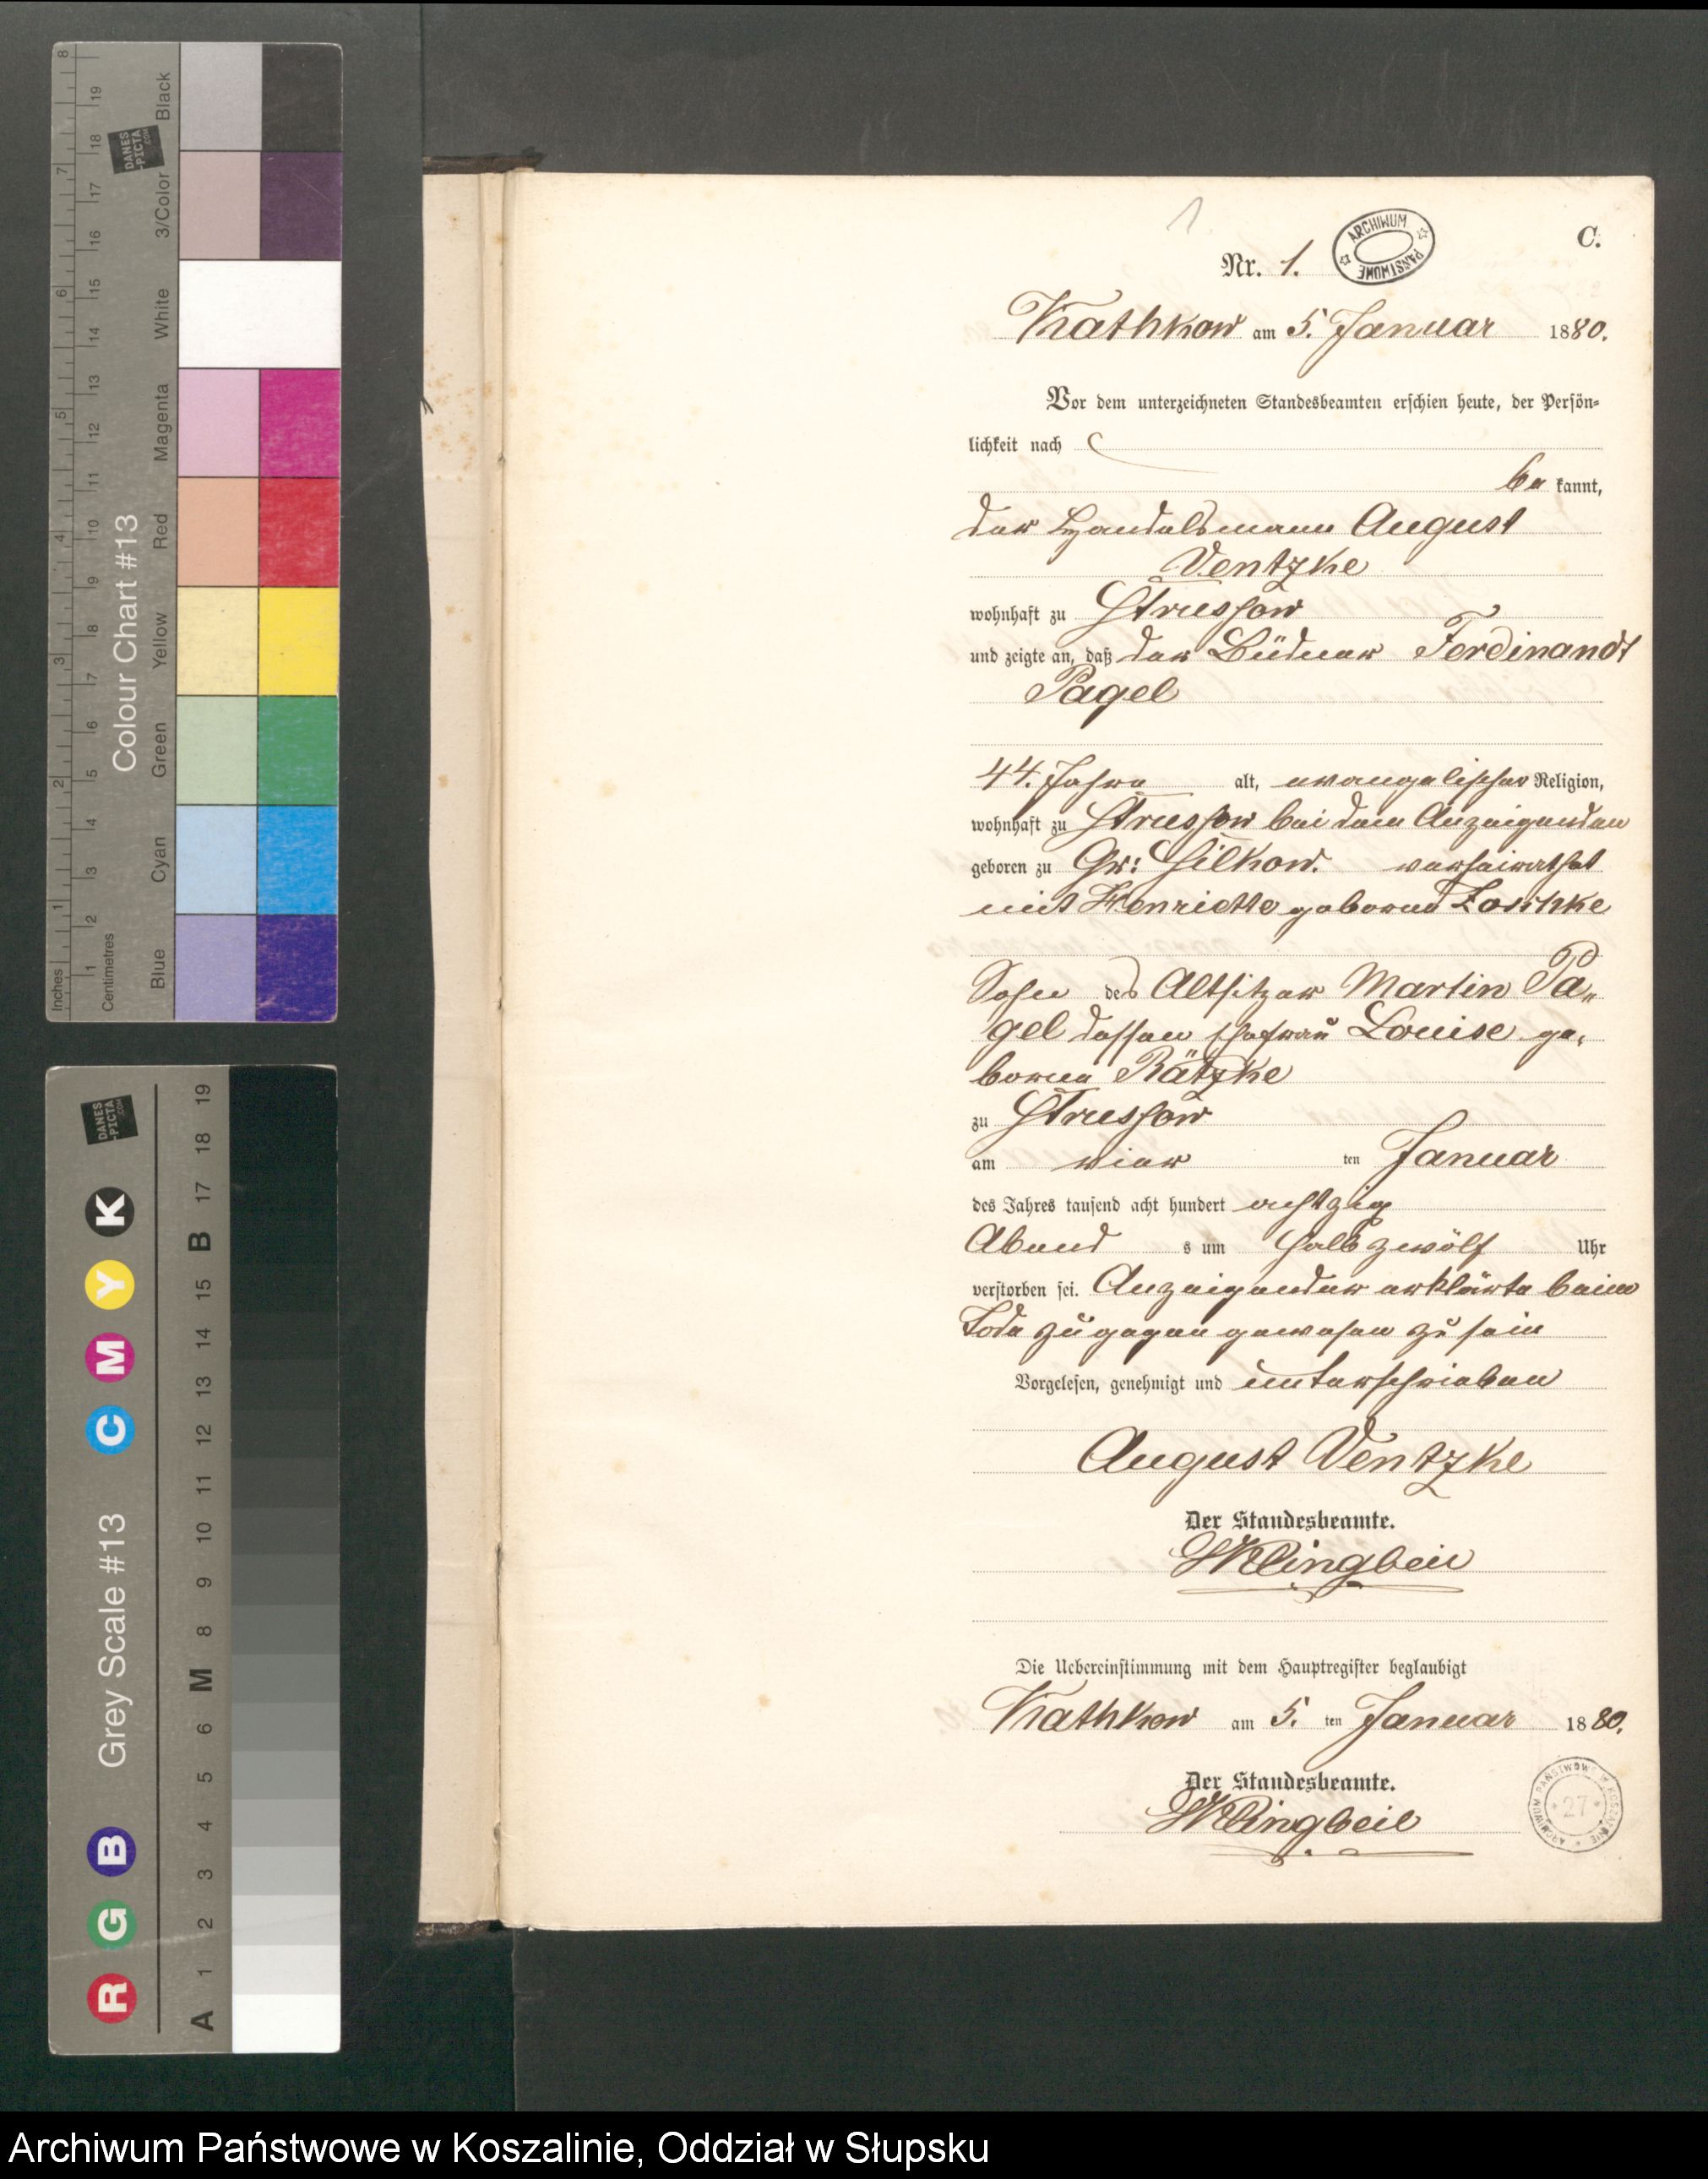 Inches
Centimetres
Colour Chart #13
Blue
Cyan
Green
Yellow
Red
Magenta
White
3/Color
Black
DANES
-PICTA
.COM
1 2 3 4 5 6 7 8
1 2 3 4 5 6 7 8 9 10 11 12 13 14 15 16 17 18 19
Grey Scale #13
R G B C M Y K
DANES
-PICTA
.COM
A 1 2 3 4 5 6 M 8 9 10 11 12 13 14 15 B 17 18 19
1
C.
Nr. 1.
ARCHIWUM PAŃSTWOWE
Rathkow am 5. Januar 1880.
Vor dem unterzeichneten Standesbeamten erschien heute, der Persön-
lichkeit nach
be kannt,
der Handelsmann August
Ventzke
wohnhaft zu Strussow
und zeigte an, daß der Büdner Ferdinandt
Pagel
44. Jahre alt, evangelischer Religion,
wohnhaft zu Strussow bei dem Anzeigenden
geboren zu Gr: Silkow. verheirathet
mit Henriette geborne
Sohn des Altsitzer Martin Pa„
gel dessen Ehefrau Louise ge„
borne Rätzke
zu Strussow
am vier ten Januar
des Jahres tausend acht hundert achtzig
Abend s um halb zwölf Uhr
verstorben sei. Anzeigender erklärte beim
Tode zugegen gewesen zu sein
Vorgelesen, genehmigt und unterschrieben
August Ventzke
Der Standesbeamte.
Klingbeil
Die Uebereinstimmung mit dem Hauptregister beglaubigt
Rathkow am 5. ten Januar 1880.
Der Standesbeamte.
Klingbeil
ARCHIWUM PAŃSTWOWE W KOSZALINIE
27
Archiwum Państwowe w Koszalinie, Oddział w Słupsku